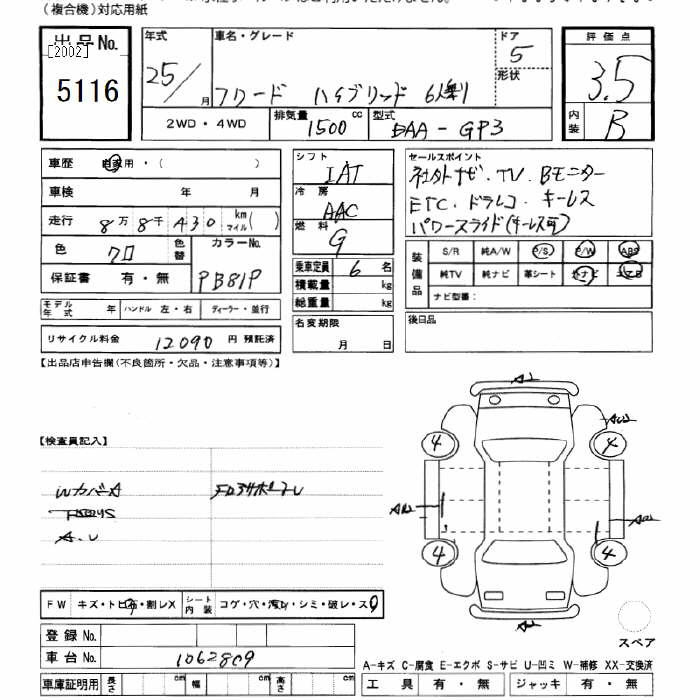 (複合機)対応用紙
出品No. [2002] 5116
年式 25/ 月
車名・グレード フリード ハイブリッド 6人乗り
ドア 5
形状
評価点 3.5
内装 B
2WD・4WD 排気量 1500 cc 型式 DAA-GP3
車歴 自家用・( )
車検 年 月
走行 8万8千430 km マイル( )
色 クロ 色替 カラーNo. PB81P
保証書 有・無
モデル年式 年 ハンドル 左・右 ディーラー・並行
リサイクル料金 12090 円 預託済
シフト IAT
冷房 AAC
燃料 G
乗車定員 6 名
積載量 kg
総重量 kg
名変期限 月 日
セールスポイント
社外ナビ・TV Bモニター
ETC・ドラレコ キーレス
パワースライド(キーレス可)
装備品 S/R 純A/W P/S P/W ABS
純TV 純ナビ 革シート 外ナビ エアB
ナビ型番:
後日品
【出品店申告欄(不良箇所・欠品・注意事項等)】
【検査員記入】
Wカバー A
A.U
A2
4 4
4 4
FW キズ・トビ石・割レX シート内装 コゲ・穴・汚レ・シミ・破レ・スレ
登録No.
車台No. 1062809
車庫証明用 長さ cm 幅 cm 高さ cm
スペア
A-キズ C-腐食 E-エクボ S-サビ U-凹ミ W-補修 XX-交換済
工具 有・無 ジャッキ 有・無